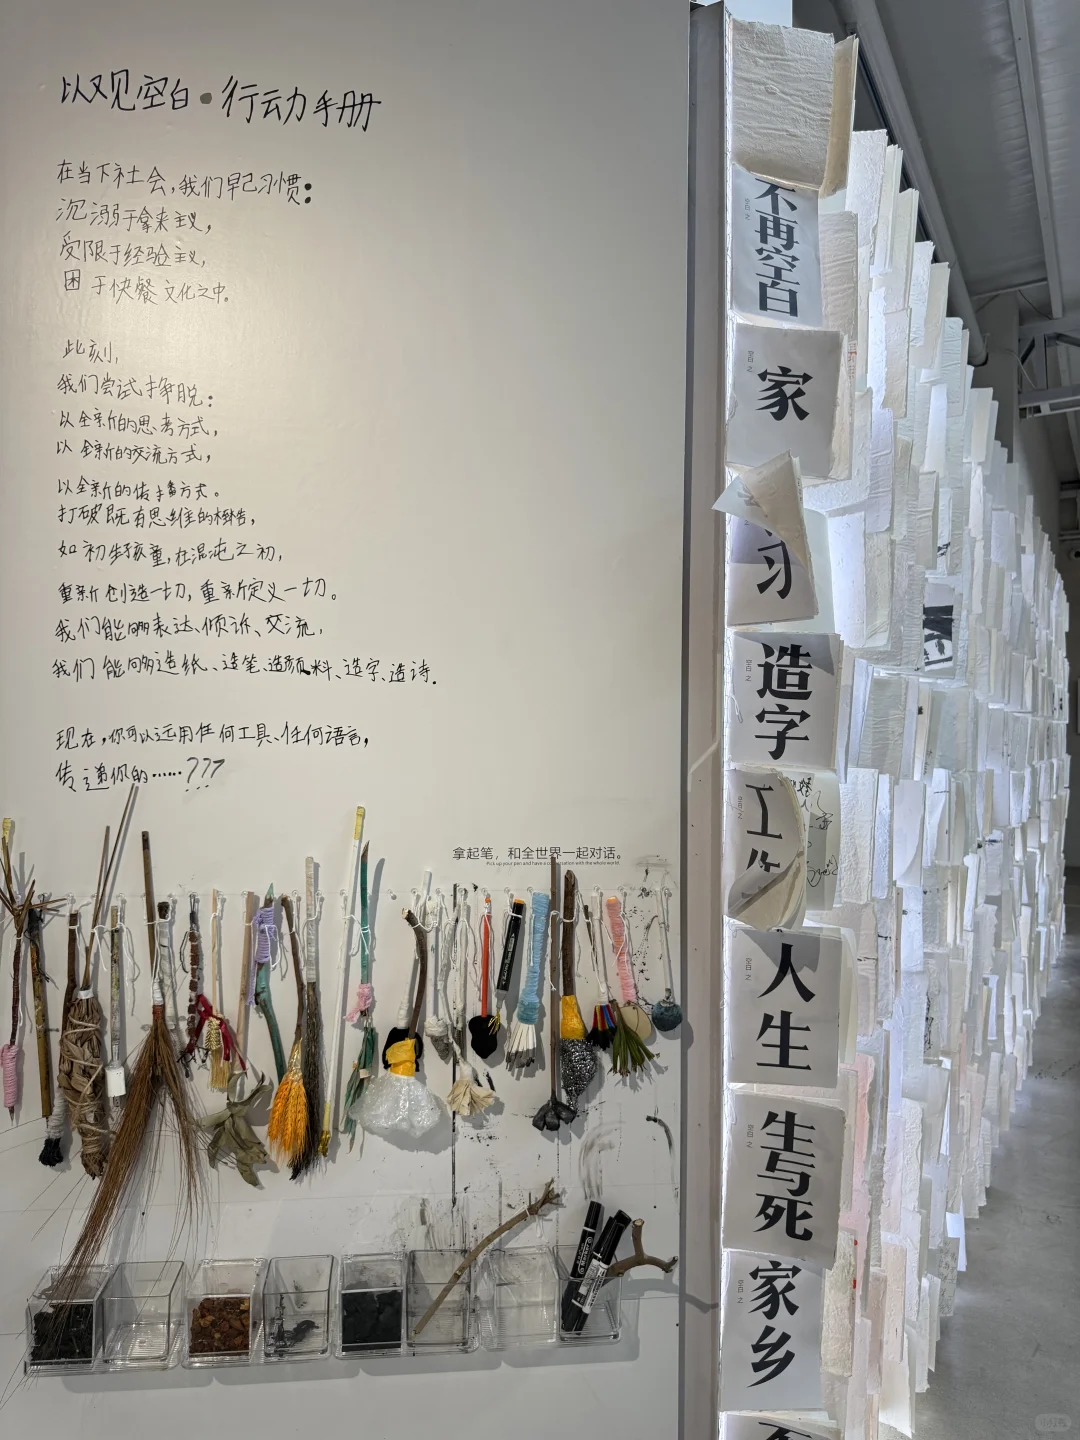 以观空白·行动手册
在当下社会,我们早已习惯:
沉溺于拿来主义,
受限于经验主义,
困于快餐文化之中。
此刻,
我们尝试挣脱:
以全新的思考方式,
以全新的交流方式,
以全新的传播方式。
打破既有思维的桎梏,
如初生孩童,在混沌之初,
重新创造一切,重新定义一切。
我们能够表达、倾诉、交流,
我们能够造纸、造笔、造颜料、造字、造诗.
现在,你可以运用任何工具、任何语言,
传递你的……???
拿起笔，和全世界一起对话。
Pick up your pen and have a conversation with the whole world.
空白之
不再空白
空白之
家
习
空白之
造字
空白之
工作
空白之
人生
空白之
生与死
空白之
家乡
小红书